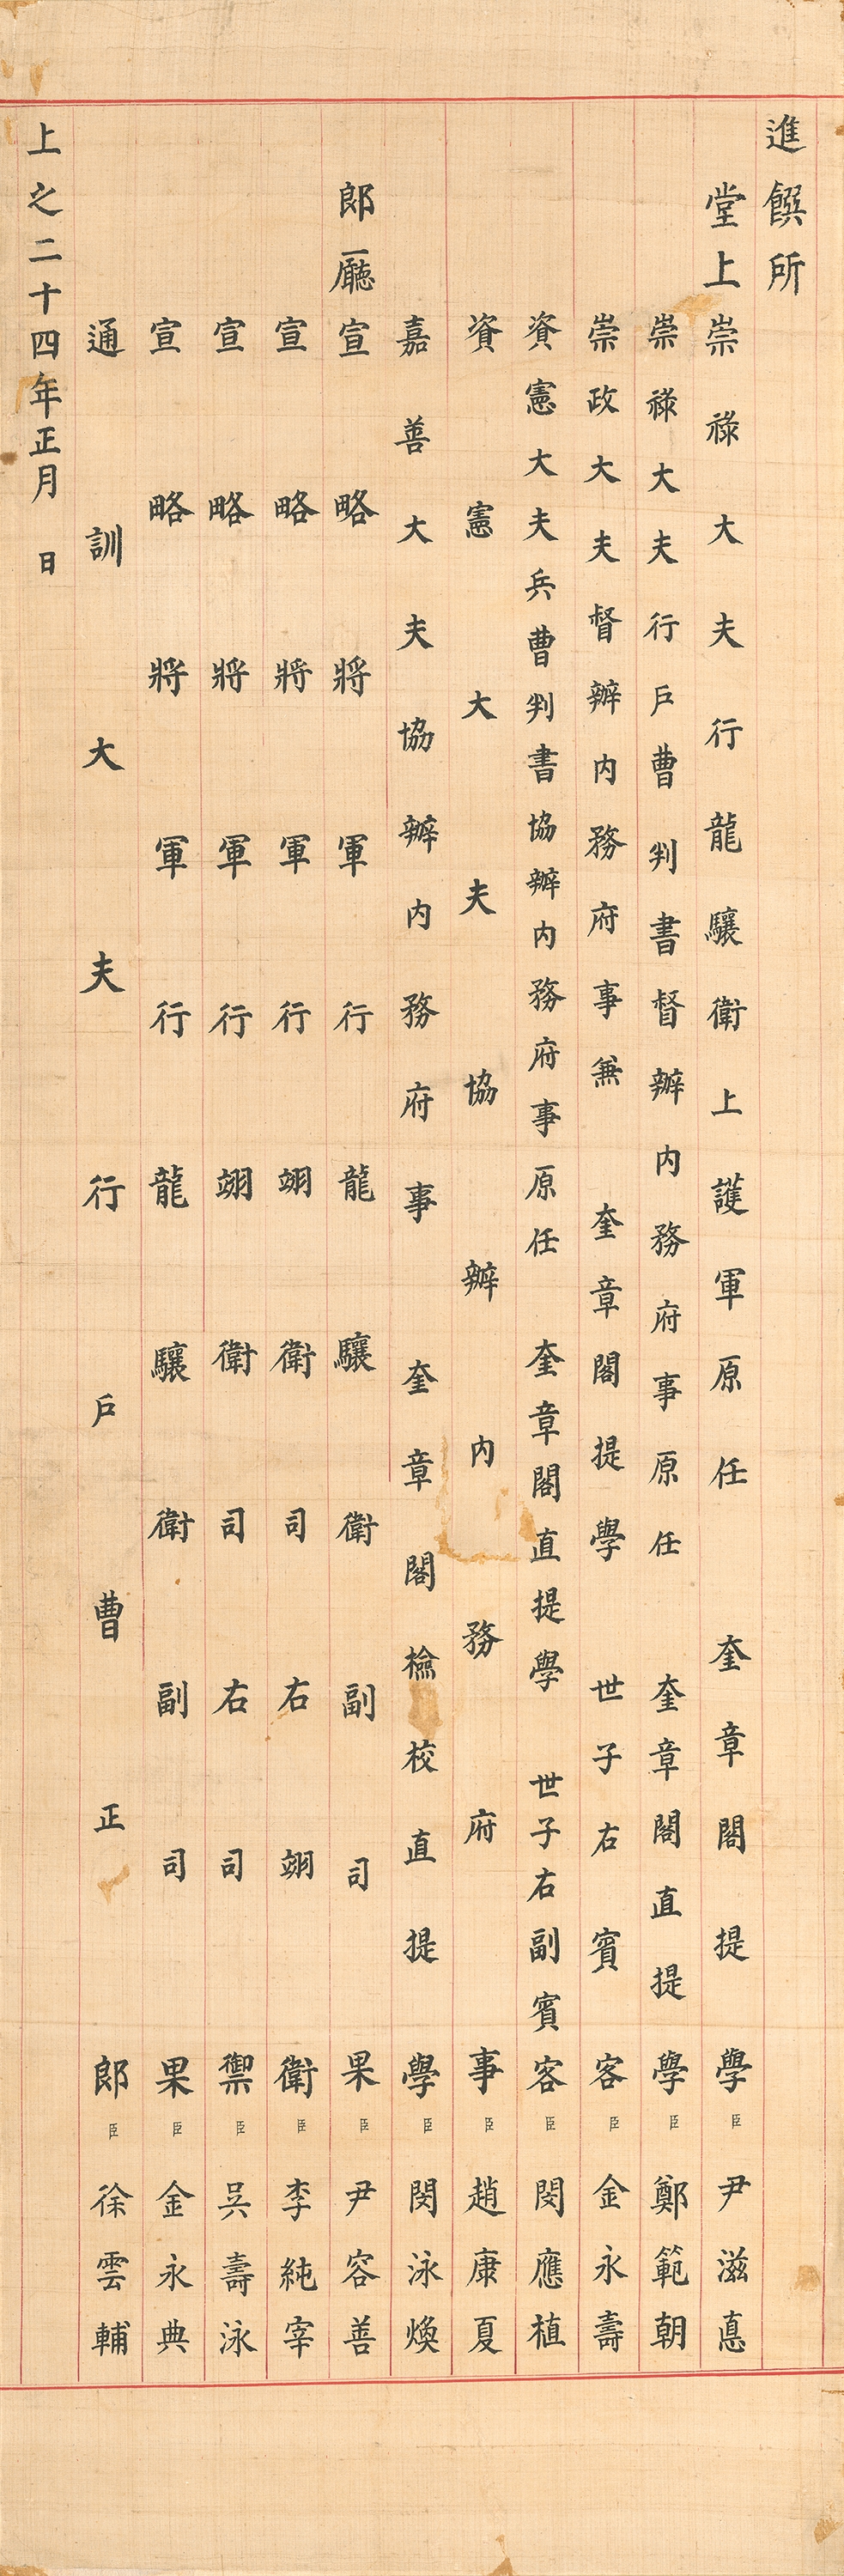 進饌所
堂上 崇祿大夫行龍驤衛上護軍原任 奎章閣提學臣尹滋悳
崇祿大夫行戶曹判書督辦內務府事原任 奎章閣直提學臣鄭範朝
崇政大夫督辦內務府事兼 奎章閣提學 世子右賓客臣金永壽
資憲大夫兵曹判書協辦內務府事原任 奎章閣直提學 世子右副賓客臣閔應植
資憲大夫協辦內務府事臣趙康夏
嘉善大夫協辦內務府事奎章閣檢校直提學臣閔泳煥
郎廳 宣略將軍行龍驤衛副司果臣尹容善
宣略將軍行翊衛司右翊衛臣李純宰
宣略將軍行翊衛司右司禦臣吳壽泳
宣略將軍行龍驤衛副司果臣金永典
通訓大夫行戶曹正郎臣徐雲輔
上之二十四年正月 日